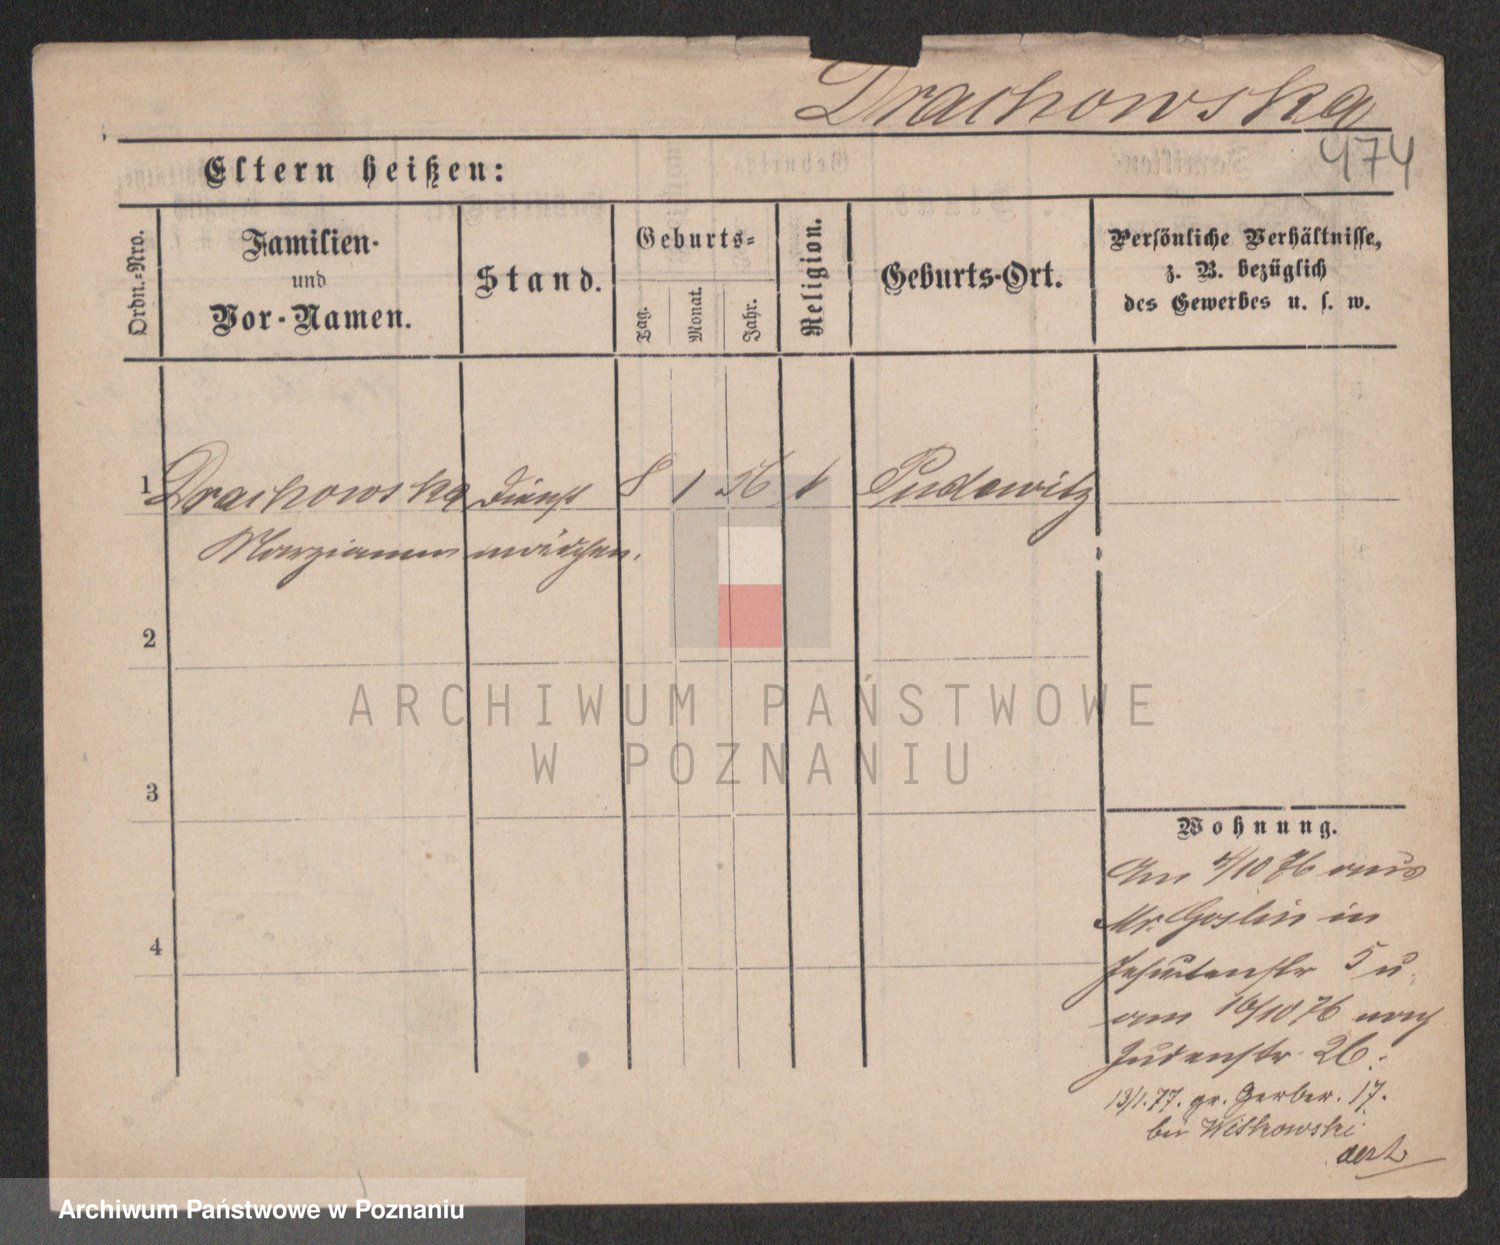 Drachowska
474
Eltern heißen:
Ordn.-Nro.
Familien-
und
Vor-Namen.
Stand.
Geburts-
Tag.
Monat.
Jahr.
Religion.
Geburts-Ort.
Persönliche Verhältnisse,
z. B. bezüglich
des Gewerbes u. s. w.
1 Drachowska Dienst 8 1 56 k Pudewitz
Marzianna mädchen.
2
3
4
ARCHIWUM PAŃSTWOWE
W POZNANIU
Wohnung.
Am 4/10 76 aus
Mr. Goslin in
Jesuitenstr 5 u.
am 16/10 76 nach
Judenstr. 26.
13/1.77. gr. Gerber. 17.
bei Witkowski
Archiwum Państwowe w Poznaniu